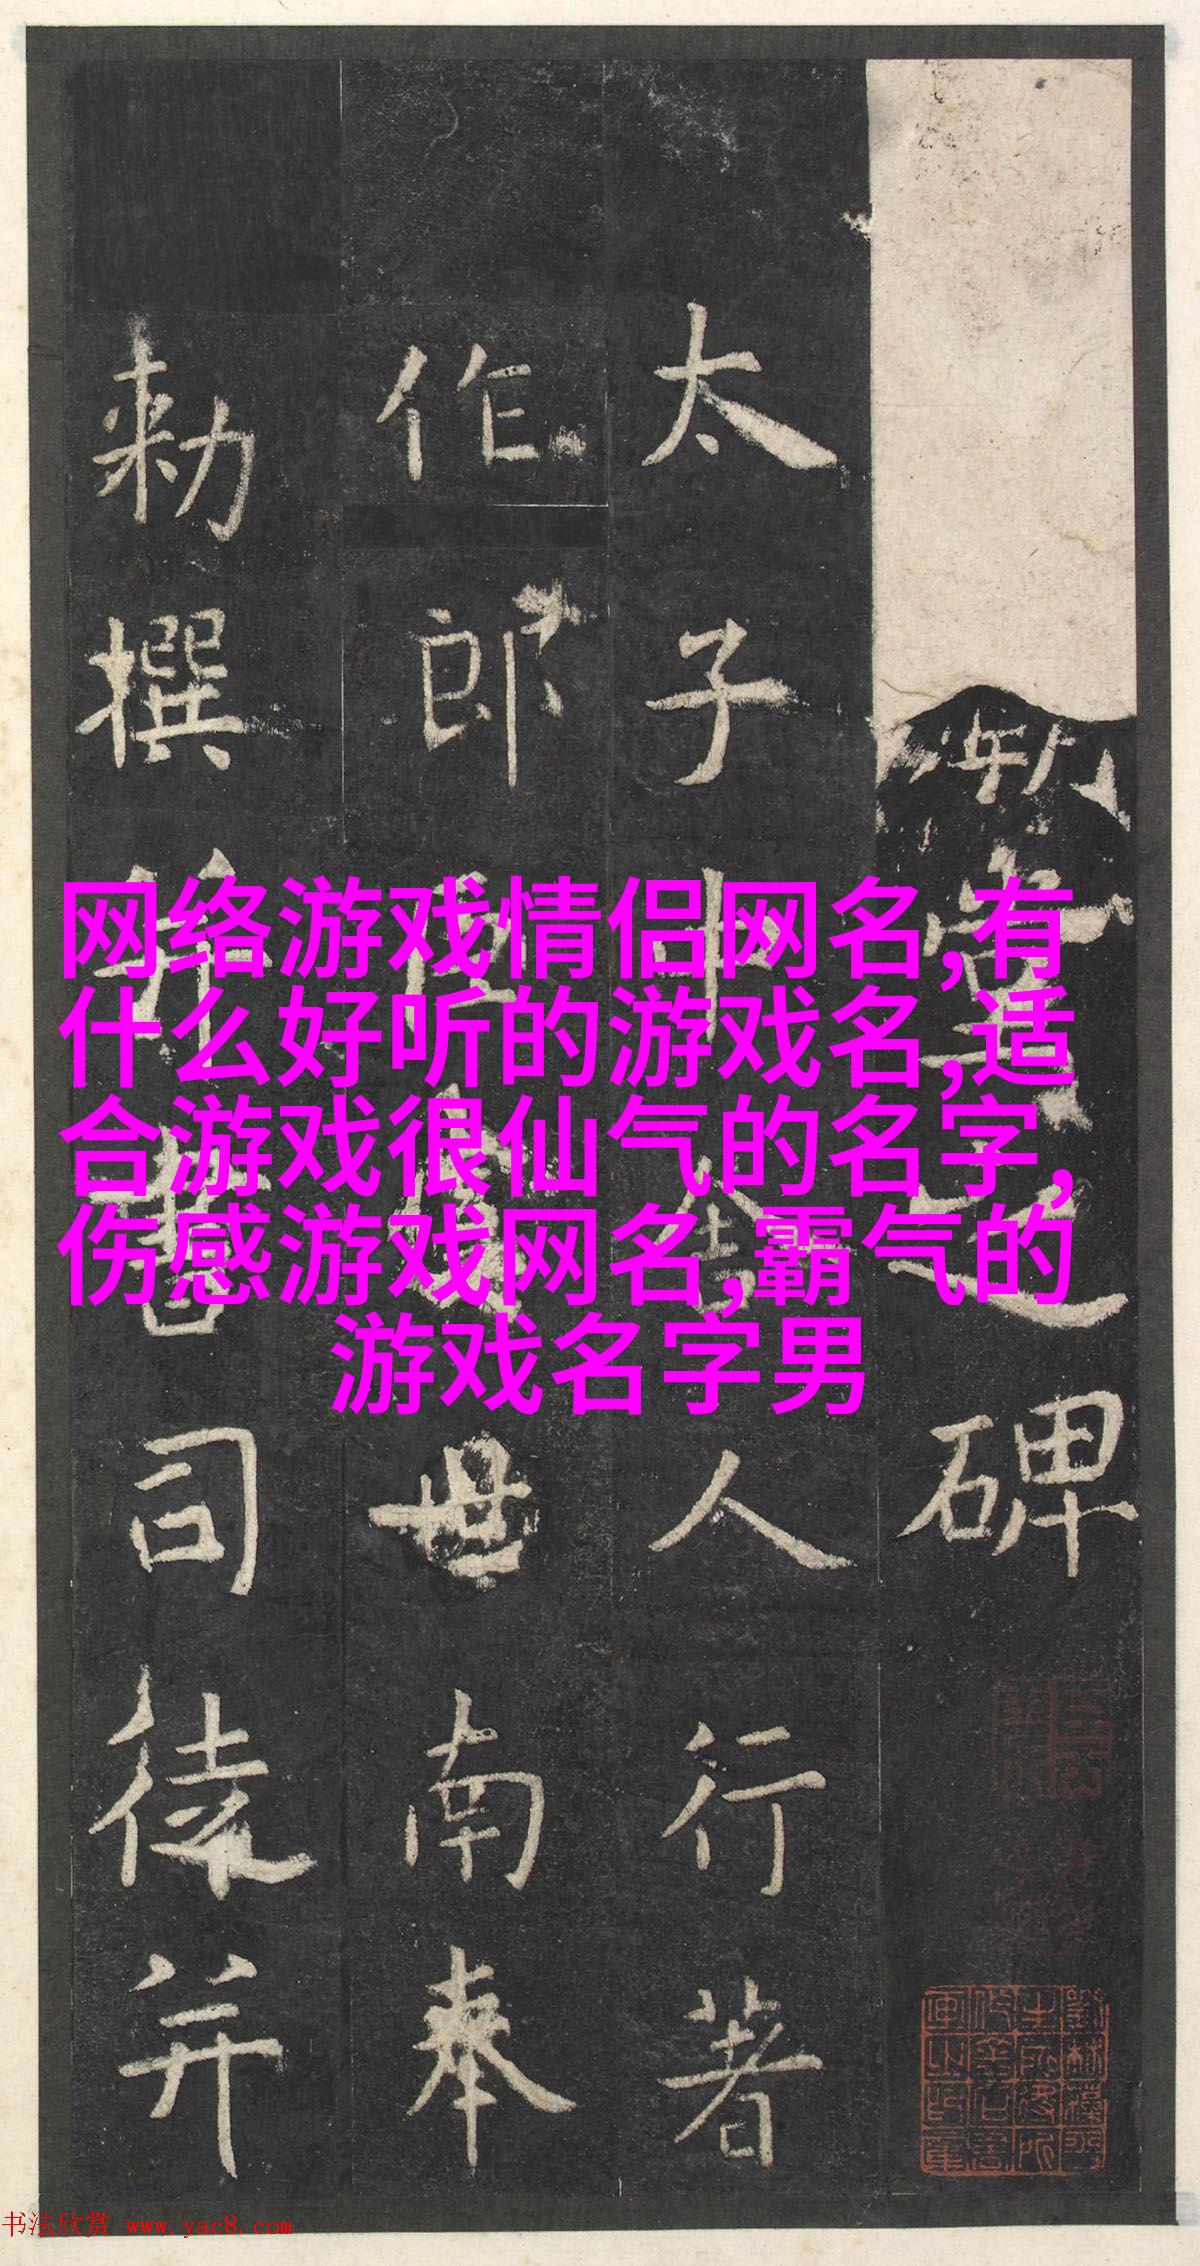 网络游戏情侣网名,有
什么好听的游戏名,适
合游戏很仙气的名字,
伤感游戏网名,霸气的
游戏名字男
堂之碑
太子中舍人行著
作郎臣虞世南奉
勅撰并書司徒并
书法欣赏 www.yac8.com